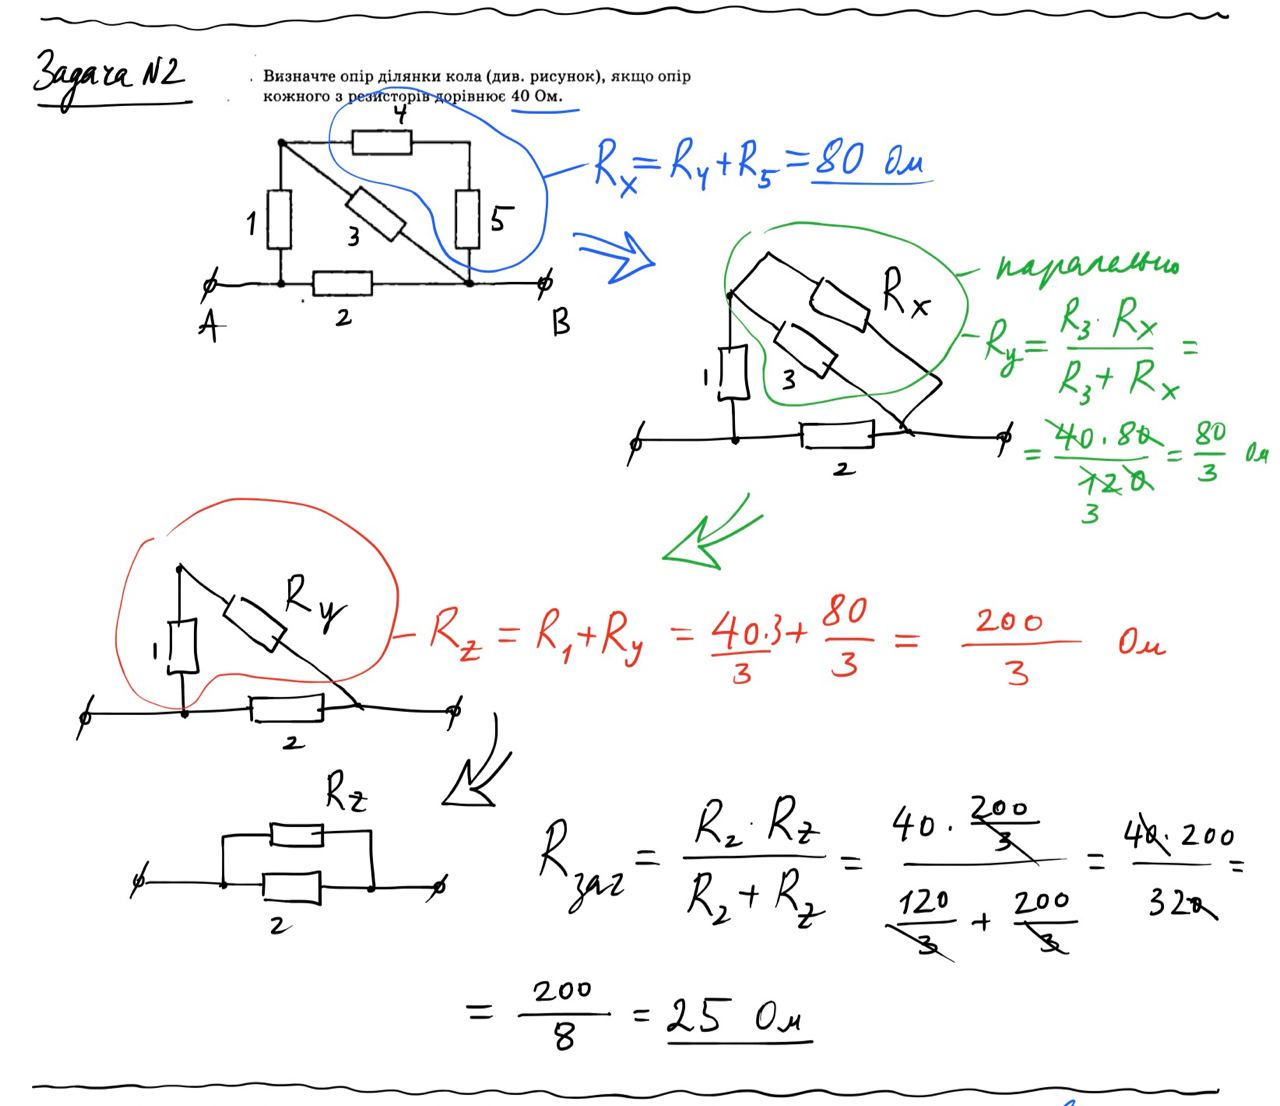 Задача N2
Визначте опір ділянки кола (див. рисунок), якщо опір
кожного з резисторів дорівнює 40 Ом.
4
1
3
5
2
A
B
Rx = R4 + R5 = 80 Ом
Rx
1
3
2
паралельно
Ry = R3 · Rx / R3 + Rx =
= 40 · 80 / 120 = 80/3 Ом
3
Ry
1
2
Rz = R1 + Ry = 40·3/3 + 80/3 = 200/3 Ом
Rz
2
Rзаг = R2 · Rz / R2 + Rz = 40 · 200/3 / 120/3 + 200/3 = 40 · 200 / 320 =
= 200/8 = 25 Ом